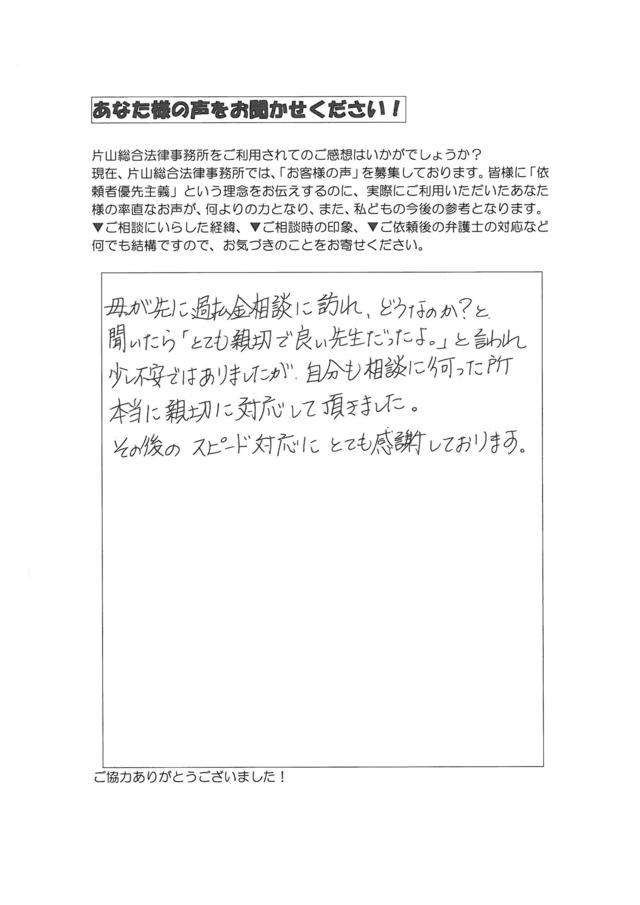 あなた様の声をお聞かせください！
片山総合法律事務所をご利用されてのご感想はいかがでしょうか？
現在、片山総合法律事務所では、「お客様の声」を募集しております。皆様に「依
頼者優先主義」という理念をお伝えするのに、実際にご利用いただいたあなた
様の率直なお声が、何よりの力となり、また、私どもの今後の参考となります。
▼ご相談にいらした経緯、▼ご相談時の印象、▼ご依頼後の弁護士の対応など
何でも結構ですので、お気づきのことをお寄せください。
母が先に過払金相談に訪れ、どうなのか？と
聞いたら「とても親切で良い先生だったよ。」と言われ
少し不安ではありましたが、自分も相談に伺った所
本当に親切に対応して頂きました。
その後の スピード対応に とても感謝しております。
ご協力ありがとうございました！